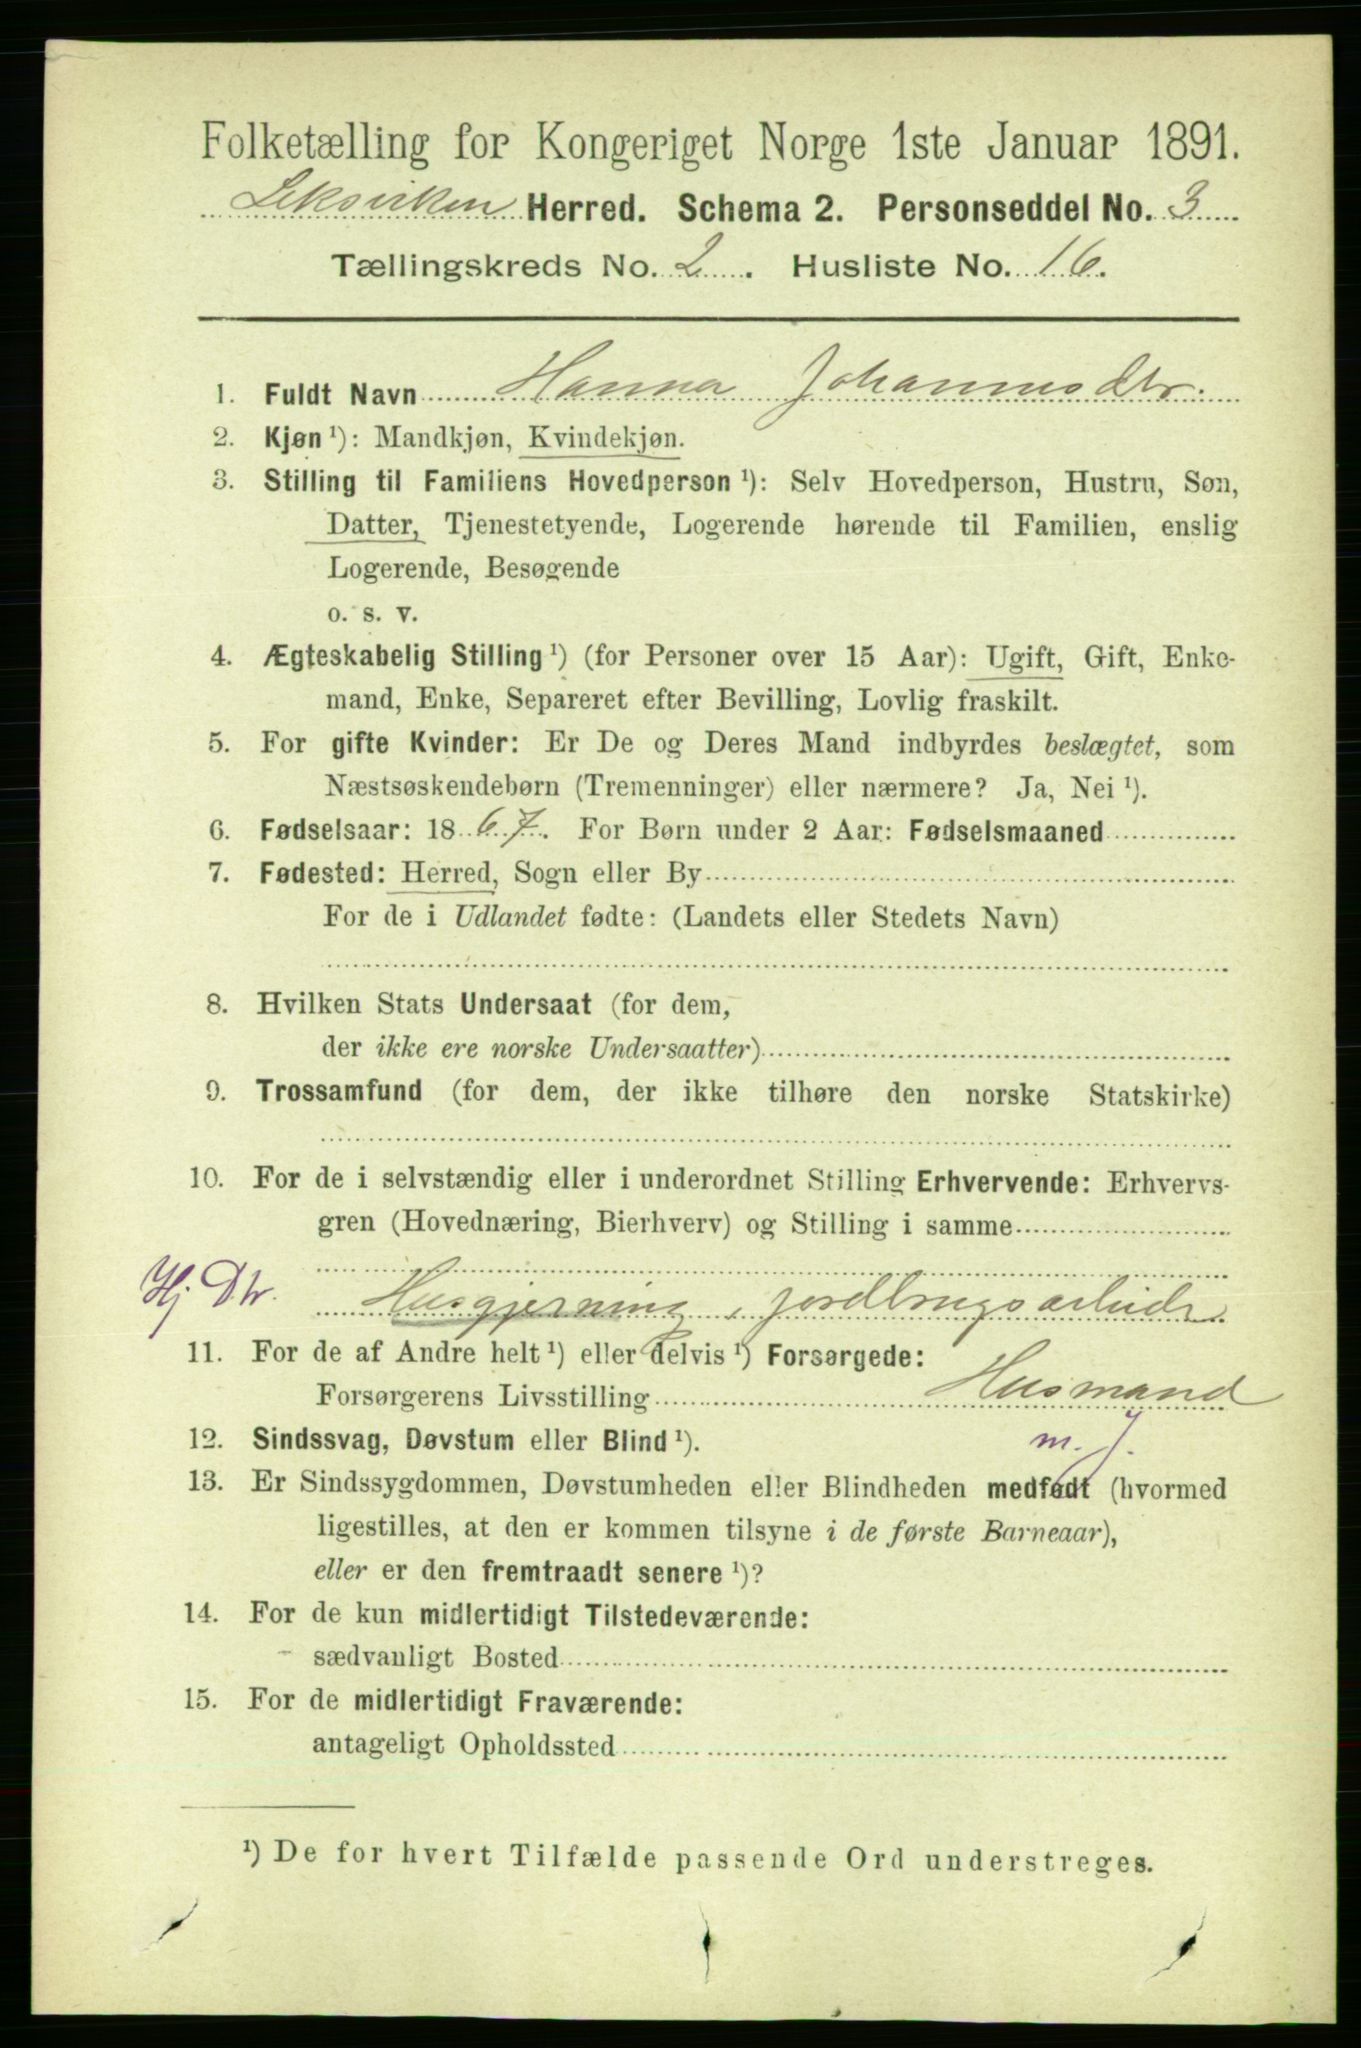 Folketælling for Kongeriget Norge 1ste Januar 1891.
Leksviken Herred. Schema 2. Personseddel No. 3
Tællingskreds No. 2. Husliste No. 16.
1. Fuldt Navn Hanna Johannesdtr.
2. Kjøn ¹): Mandkjøn, Kvindekjøn.
3. Stilling til Familiens Hovedperson ¹): Selv Hovedperson, Hustru, Søn,
Datter, Tjenestetyende, Logerende hørende til Familien, enslig
Logerende, Besøgende
o. s. v.
4. Ægteskabelig Stilling ¹) (for Personer over 15 Aar): Ugift, Gift, Enke-
mand, Enke, Separeret efter Bevilling, Lovlig fraskilt.
5. For gifte Kvinder: Er De og Deres Mand indbyrdes beslægtet, som
Næstsøskendebørn (Tremenninger) eller nærmere? Ja, Nei ¹).
6. Fødselsaar: 1867. For Børn under 2 Aar: Fødselsmaaned
7. Fødested: Herred, Sogn eller By
For de i Udlandet fødte: (Landets eller Stedets Navn)
8. Hvilken Stats Undersaat (for dem,
der ikke ere norske Undersaatter)
9. Trossamfund (for dem, der ikke tilhøre den norske Statskirke)
10. For de i selvstændig eller i underordnet Stilling Erhvervende: Erhvervs-
gren (Hovednæring, Bierhverv) og Stilling i samme
Hj Dtr. Husgjerning, jordbrugsarbeide
11. For de af Andre helt ¹) eller delvis ¹) Forsørgede:
Forsørgerens Livsstilling Husmand
12. Sindssvag, Døvstum eller Blind ¹). m. J.
13. Er Sindssygdommen, Døvstumheden eller Blindheden medfødt (hvormed
ligestilles, at den er kommen tilsyne i de første Barneaar),
eller er den fremtraadt senere ¹)?
14. For de kun midlertidigt Tilstedeværende:
sædvanligt Bosted
15. For de midlertidigt Fraværende:
antageligt Opholdssted
¹) De for hvert Tilfælde passende Ord understreges.